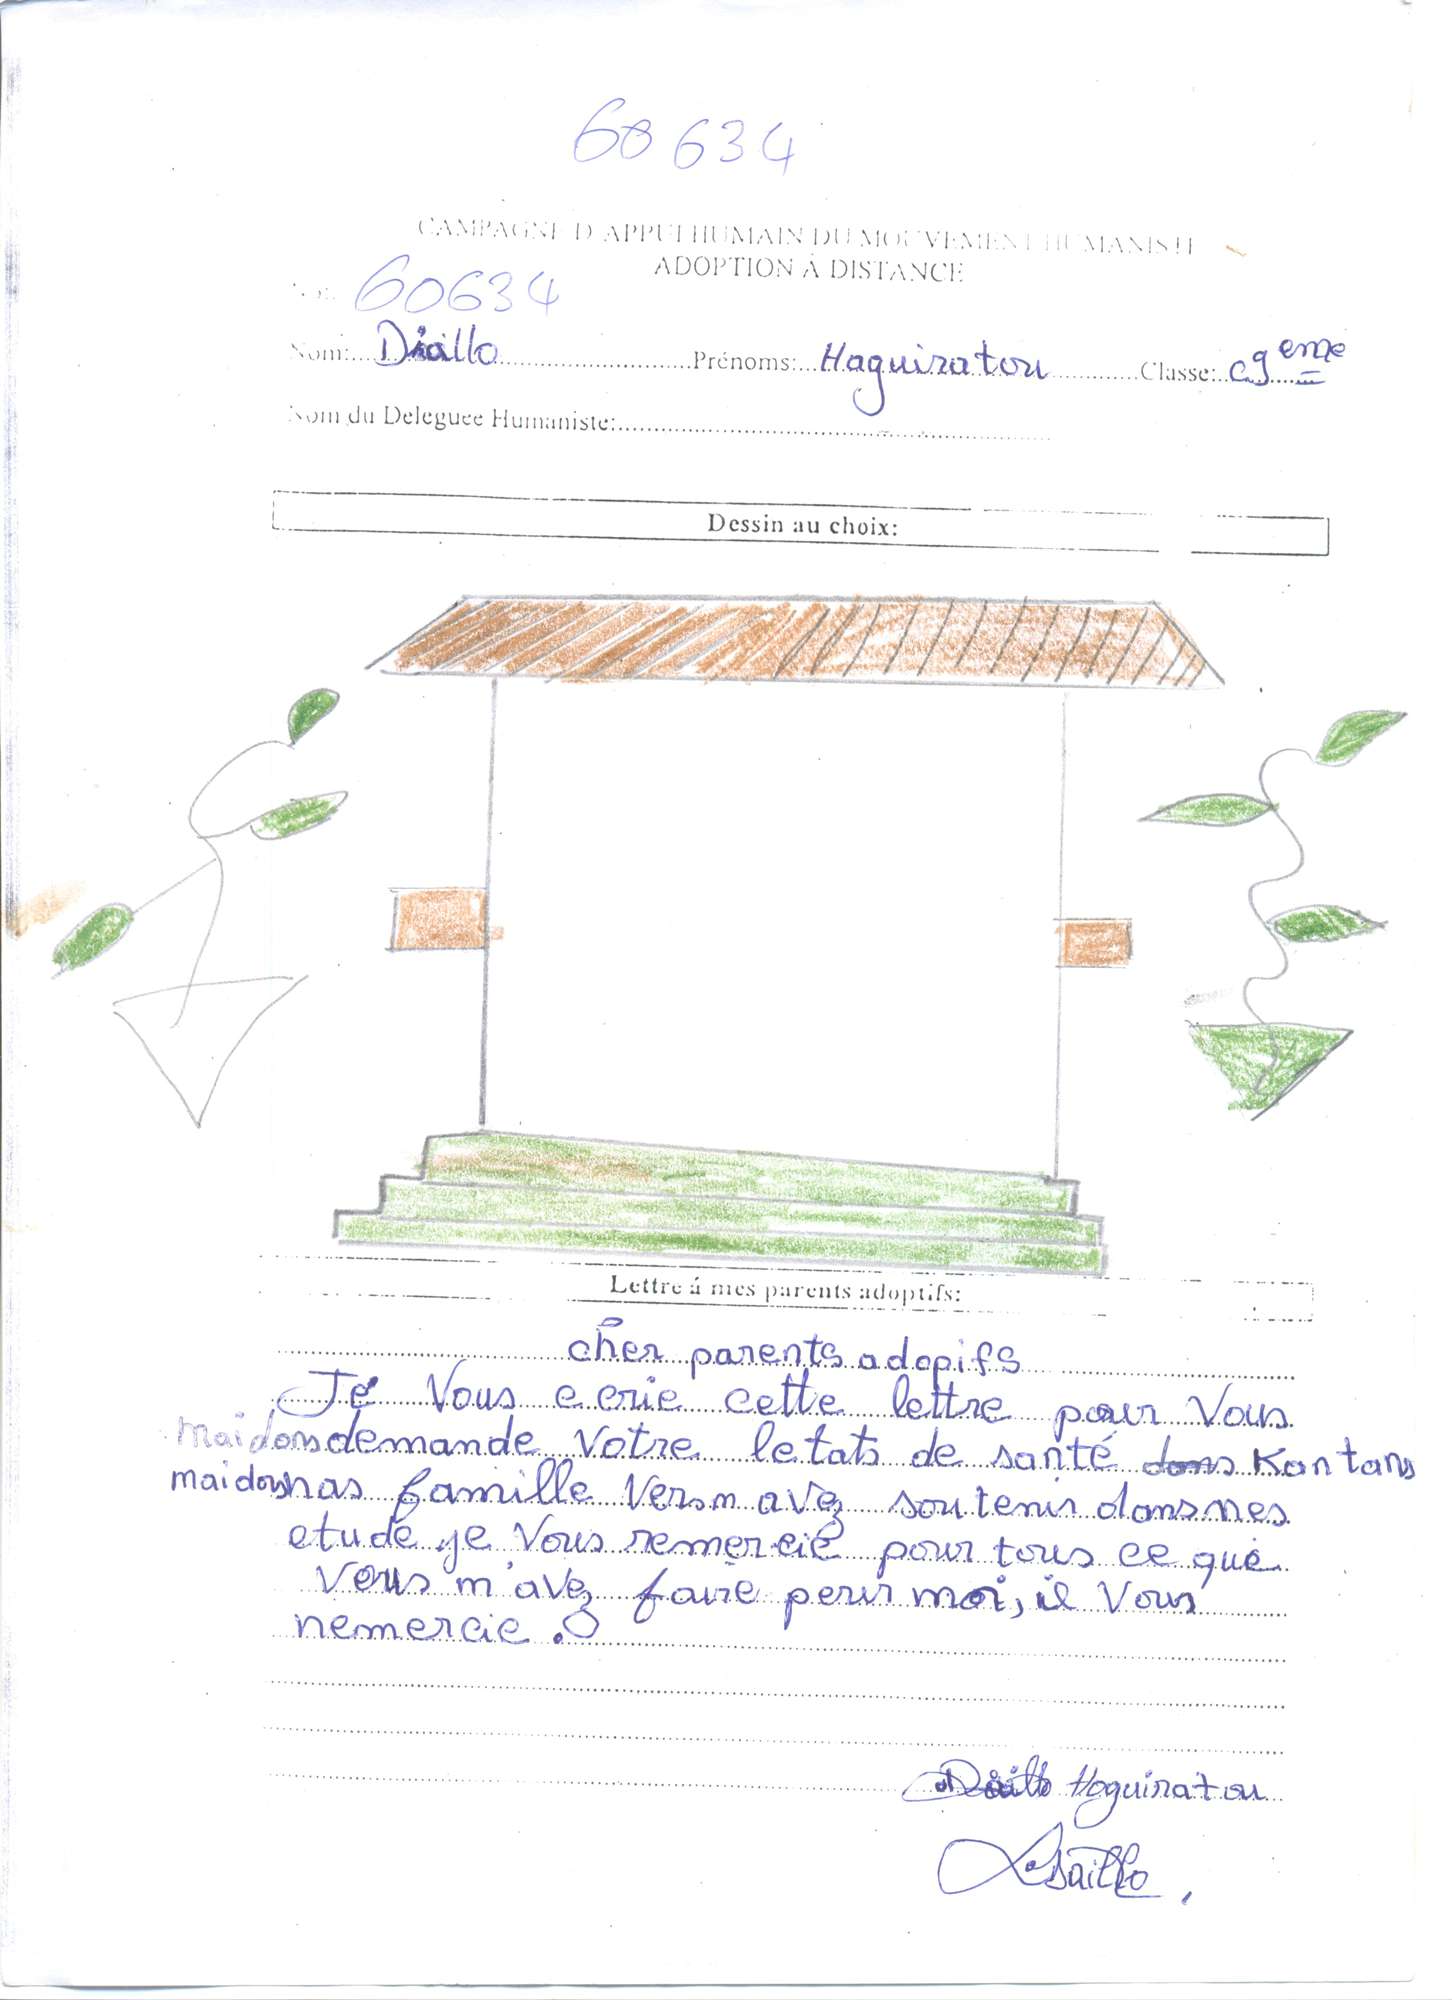 60634
CAMPAGNE D'APPUI HUMAIN DU MOUVEMENT HUMANISTE
ADOPTION À DISTANCE
60634
Nom: Diallo Prénoms: Haguiratou Classe: 9eme
Nom du Deleguee Humaniste:
Dessin au choix:
Lettre á mes parents adoptifs:
cher parents adopifs
Je Vous ecrie cette lettre pour Vous
maidons demande Votre letats de santé dans Kantans
maidons nas famille Vers m avez soutenir dans nes
etude je Vous remercie pour tous ce que
Vous m'avez faire pour moi, il Vous
remercie.
Diallo Haguiratou
Diallo